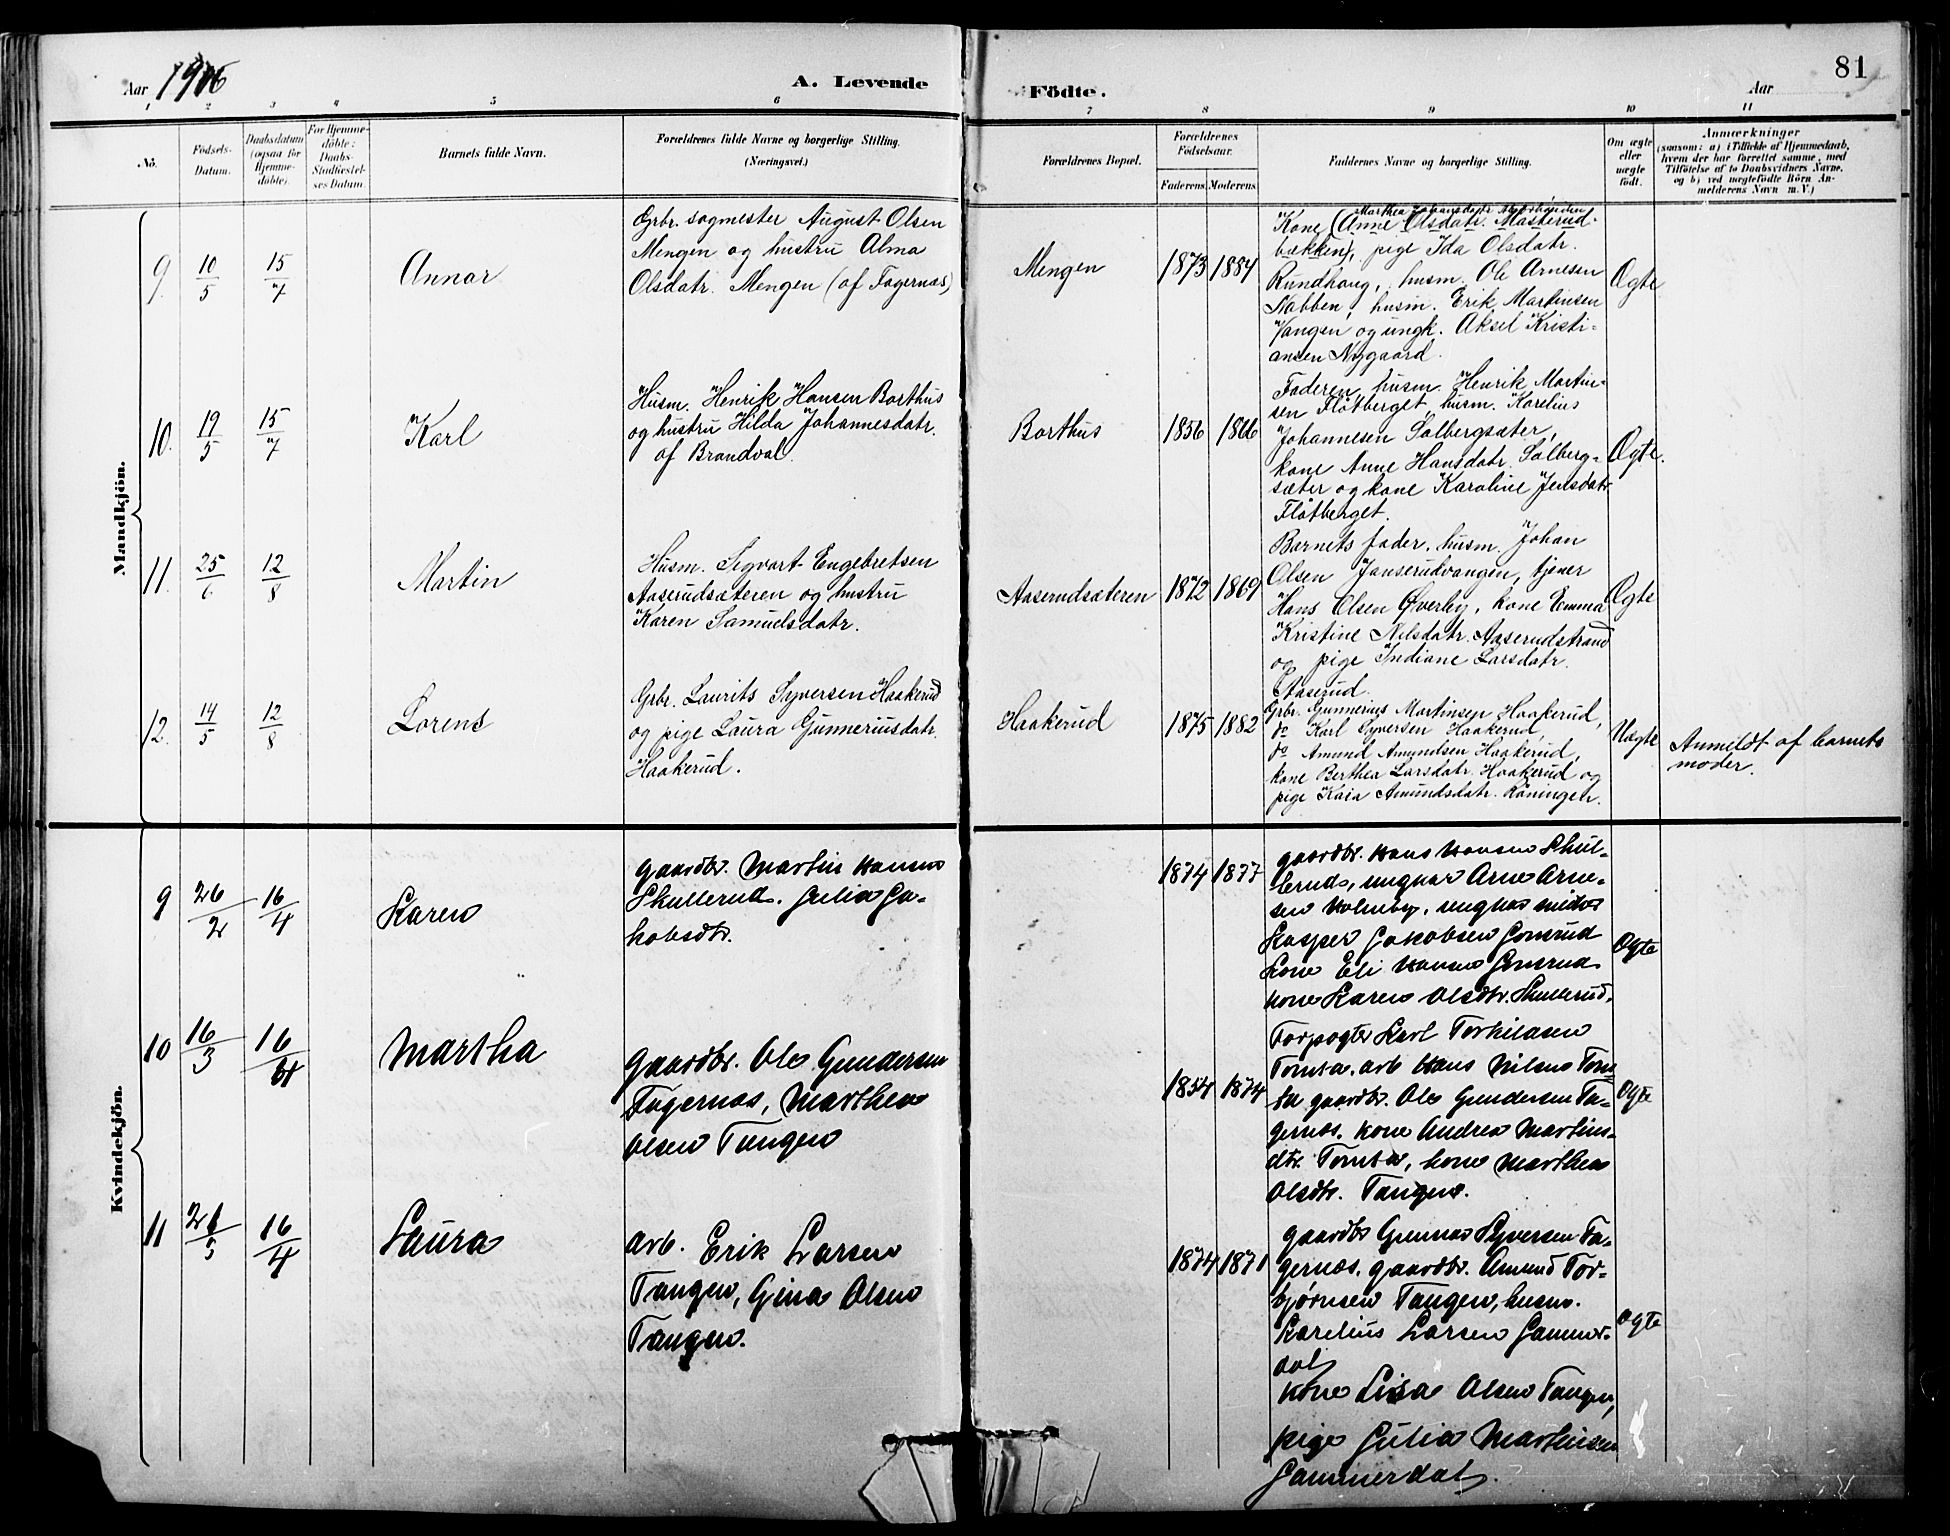 Aar 1906
A. Levende
Fødte.
Aar
81
1 2 3 4 5 6 7 8 9 10 11
No.
Födsels-
Datum.
Daabsdatum
(ogsaa for
Hjemme-
døbte).
For Hjemme-
döbte:
Daabs-
Stadfæstel-
ses Datum.
Barnets fulde Navn.
Forældrenes fulde Navne og borgerlige Stilling.
(Næringsvei.)
Forældrenes Bopæl.
Forældrenes
Födselsaar.
Faderens. Moderens.
Faddernes Navne og borgerlige Stilling.
Om ægte
eller
uægte
født.
Anmærkninger
(saasom: a) i Tilfælde af Hjemmedaab,
hvem der har forrettet samme, med
Tilføielse af to Daabsvidners Navne,
og b) ved uægtefödte Börn An-
melderens Navn m. V.)
Mandkjön.
9. 10/5 15/7
Annar
Grbr. sagmester August Olsen
Mengen og hustru Alma
Olsdatr. Mengen (af Fagernæs)
Mengen
1873 1884
Kone (Anne Olsdatr. Masterud-
bækken), pige Ida Olsdatr.
Rundhaug, husm. Ole Arnesen
Nabben, husm. Erik Martinsen
Vangen og ungk. Aksel Kristi-
ansen Nygaard.
Ægte
10. 19/5 15/7
Karl
Husm. Henrik Hansen Borthus
og hustru Hilda Johannesdatr.
af Brandval.
Borthus
1856 1866
Faderen, husm. Henrik Martin-
sen Fløtberget, husm. Karelius
Johannesen Solbergsæter,
kone Anne Hansdatr. Solberg-
sæter og kone Karoline Jensdatr.
Fløtberget.
Ægte.
11. 25/6 12/8
Martin
Husm. Sigvart Engebretsen
Aaserudsæteren og hustru
Karen Samuelsdatr.
Aaserudsæteren
1872 1869
Barnets fader, husm. Johan
Olsen Janserudvangen, tjener
Hans Olsen Øverby, kone Emma
Kristine Nilsdatr. Aaserudstrand
og pige Indiane Larsdatr.
Aaserud.
Ægte
12. 14/5 12/8
Lorens
Grbr. Laurits Syversen Haakerud
og pige Laura Gunneriusdatr.
Haakerud.
Haakerud
1875 1882
Grbr. Gunnerius Martinsen Haakerud,
do Karl Syversen Haakerud,
do Amund Amundsen Haakerud,
kone Berthea Larsdatr. Haakerud og
pige Kaia Amundsdatr. Røningen.
Uægte
Anmeldt af barnets
moder.
Kvindekjön.
9 26/2 16/4
Karen
gaardbr. Martin Hansen
Skullerud. Julia Ja-
kobsdtr.
1874 1877
gaardbr. Hans Hansen Skul-
lerud, ungkar Arne Arne-
sen Holmby, ungkar
Kasper Jakobsen
kone Eli Hansen
kone Karen Olsdtr. Skullerud.
Ægte
10 16/3 16/4
Martha
gaardbr. Ole Gundersen
Fagernæs, Marthea
Olsen Tangen
1854 1874
Forpagter Karl Torkilsen
Tomta, arb Hans Nilsen Tom-
ta gaardbr. Ole Gundersen Fa-
gernæs. kone Andrea Martins-
dtr. Tomta, kone Marthea
Olsdtr. Tangen.
Ægte
11 21/3 16/4
Laura
Arb. Erik Larsen
Tangen, Gina Olsen
Tangen.
1874 1871
gaardbr Gunnar Syversen Fa-
gernæs. gaardbr. Amund Tor-
bjørnsen Tangen, husm.
Karelius Larsen Gammer-
dal,
kone Lisa Olsen Tangen,
pige Julia Martinsen
Gammerdal.
Ægte